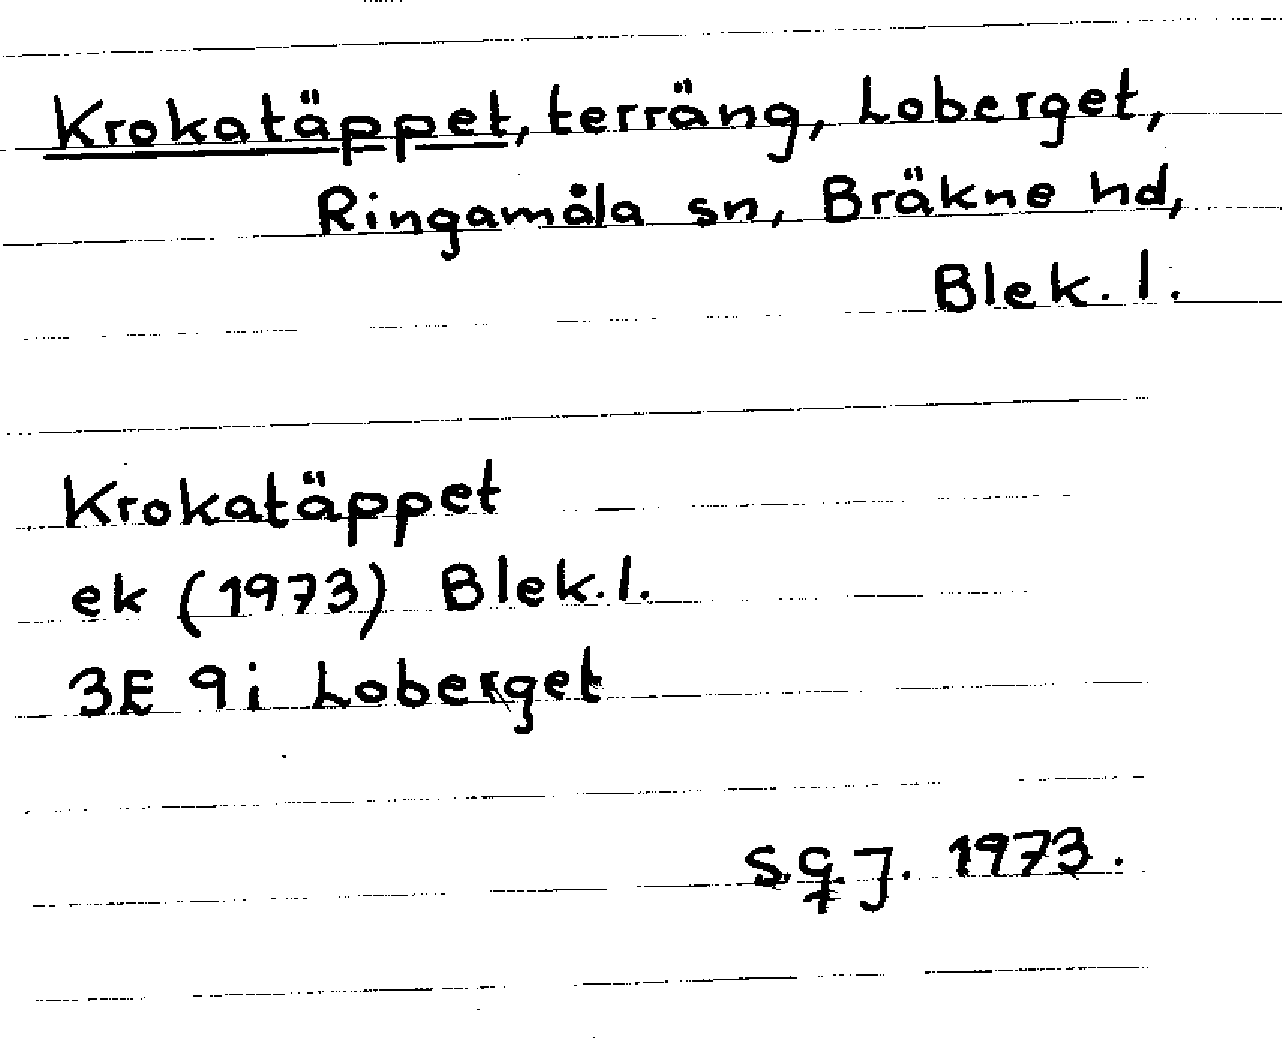 Krokatäppet, terräng, Loberget,
Ringamåla sn, Bräkne hd,
Blek. l.
Krokatäppet
ek (1973) Blek. l.
3E 9i Loberget
S.G.J. 1973.